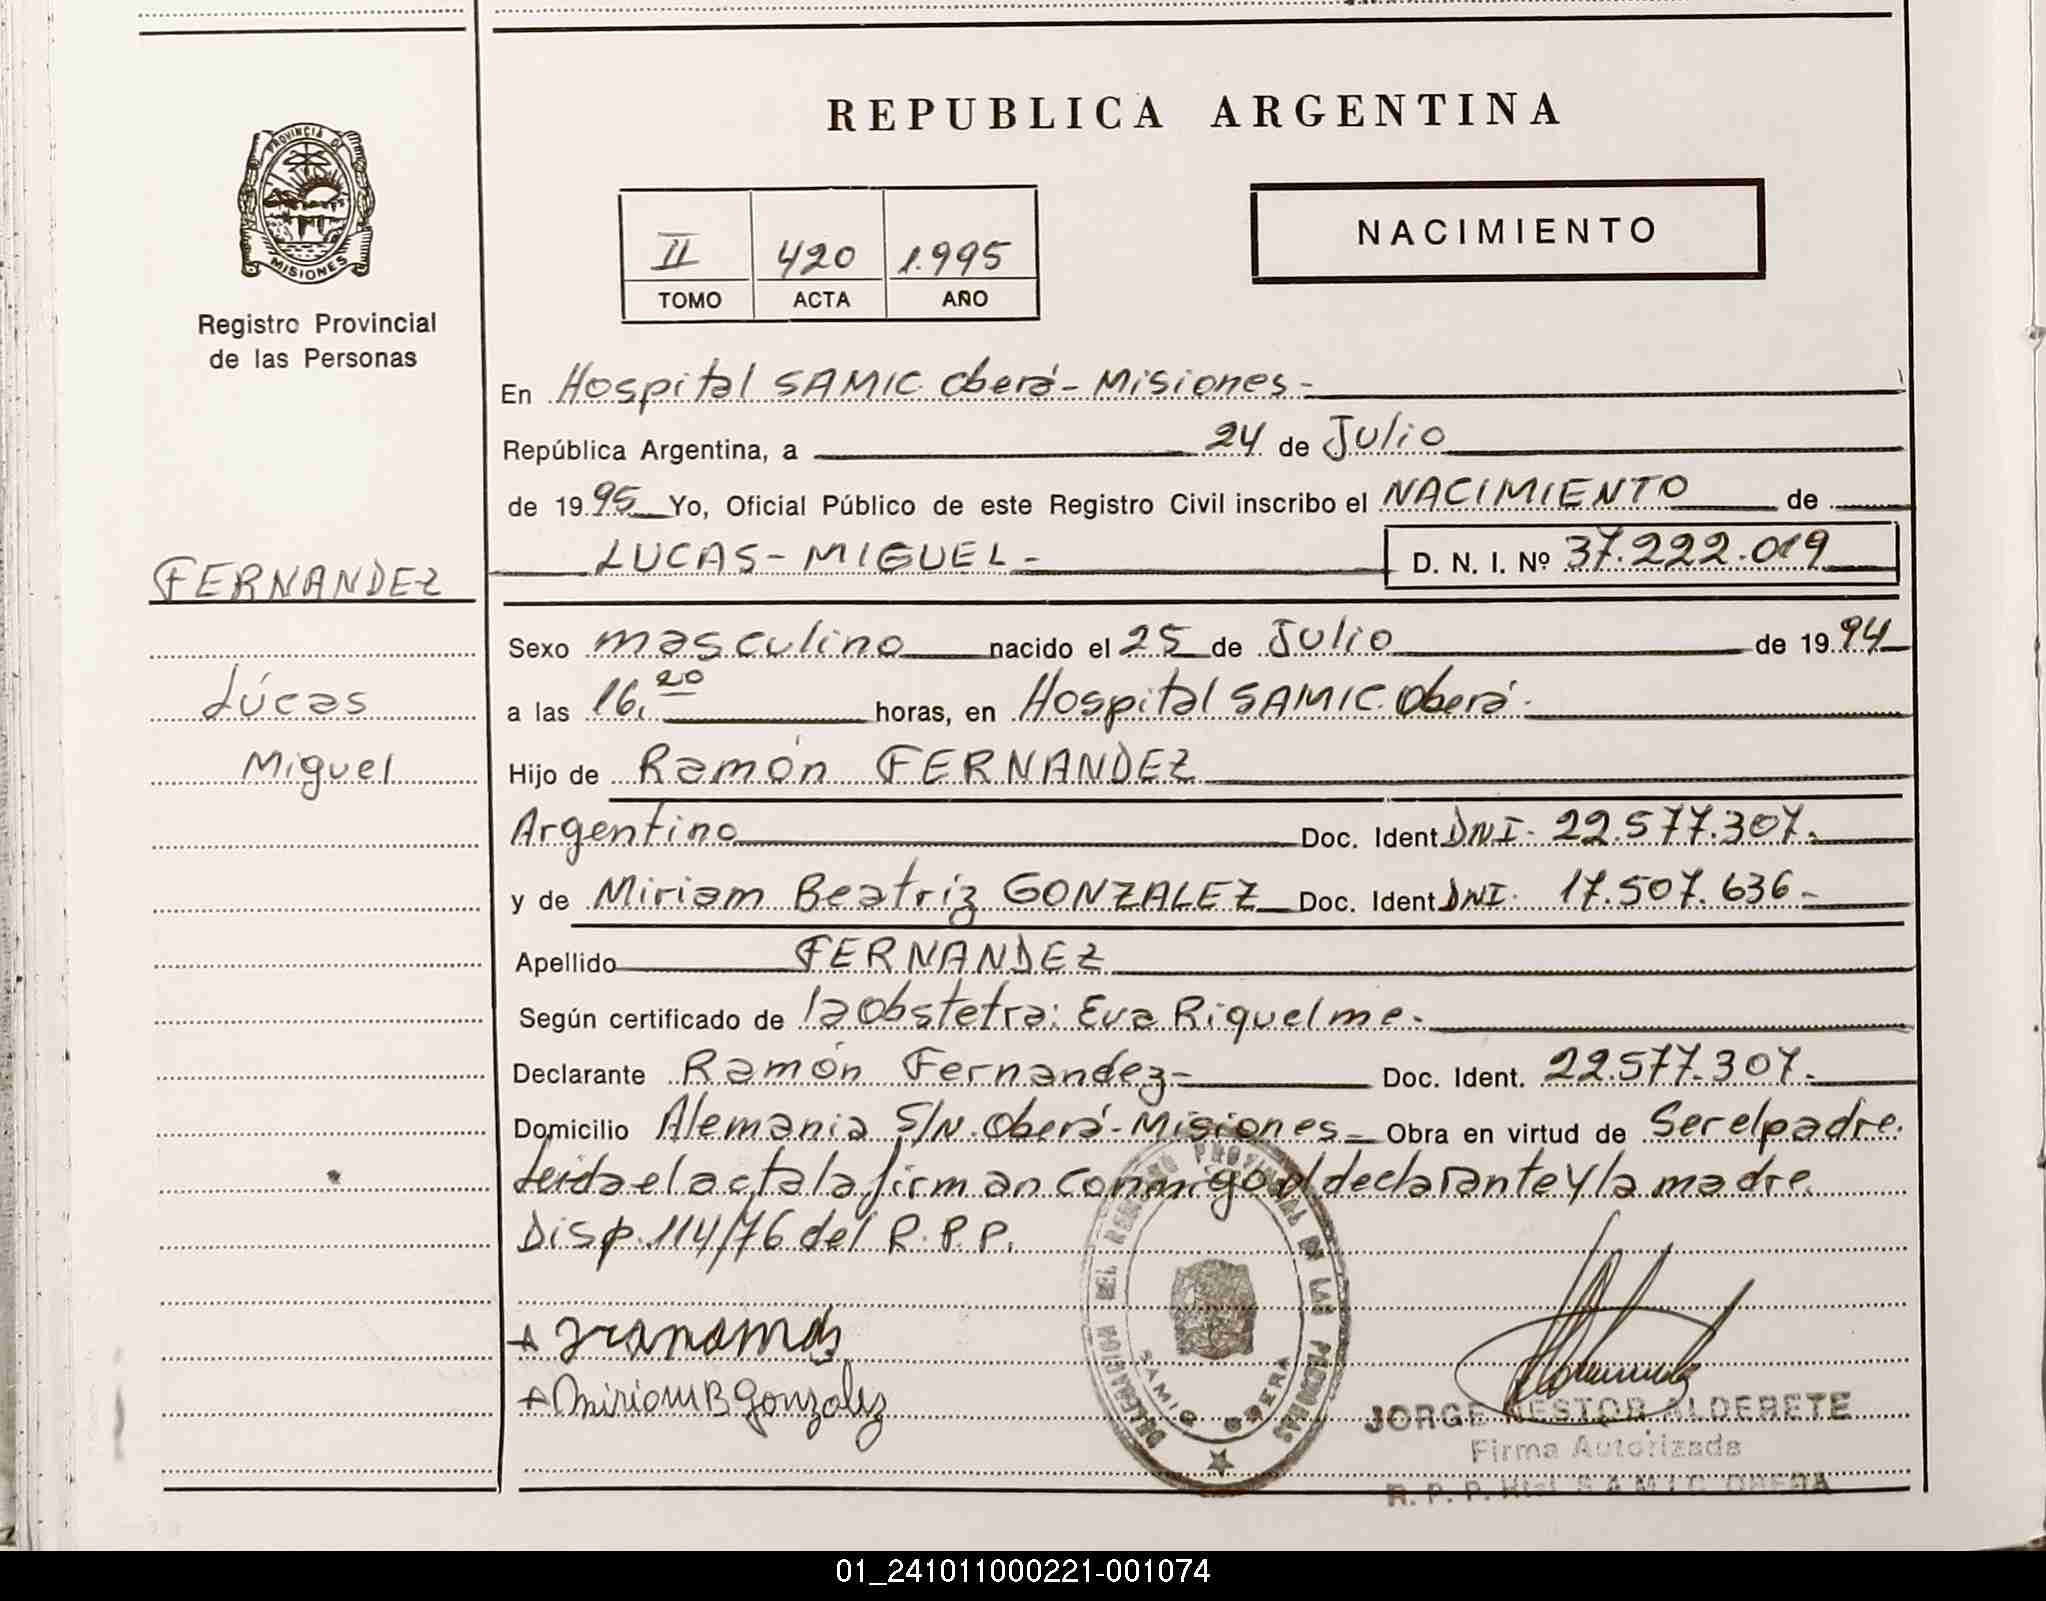 REPUBLICA ARGENTINA
PROVINCIA DE
MISIONES
Registro Provincial
de las Personas
II 420 1.995
TOMO ACTA AÑO
NACIMIENTO
En Hospital SAMIC. Oberá - Misiones -
República Argentina, a 24 de Julio
de 1995 Yo, Oficial Público de este Registro Civil inscribo el NACIMIENTO de
LUCAS - MIGUEL - D. N. I. Nº 37.222.019
FERNANDEZ
Lúcas
Miguel
Sexo masculino nacido el 25 de Julio de 1994
a las 16.20 horas, en Hospital SAMIC. Oberá.
Hijo de Ramón FERNANDEZ
Argentino Doc. Ident. DNI. 22.577.307.
y de Miriam Beatríz GONZALEZ Doc. Ident. DNI. 17.507.636 -
Apellido FERNANDEZ
Según certificado de la Obstetra: Eva Riquelme.
Declarante Ramón Fernandez - Doc. Ident. 22.577.307.
Domicilio Alemania S/N. Oberá - Misiones - Obra en virtud de Ser el padre.
Leida el acta la firman conmigo el declarante y la madre.
Disp. 114/76 del R.P.P.
+ Miriam B Gonzalez
DELEGACION DEL REGISTRO PROVINCIAL DE LAS PERSONAS
SAMIC OBERA
JORGE NESTOR ALDERETE
Firma Autorizada
R. P. P. Htal S A M I C OBERA
01_241011000221-001074